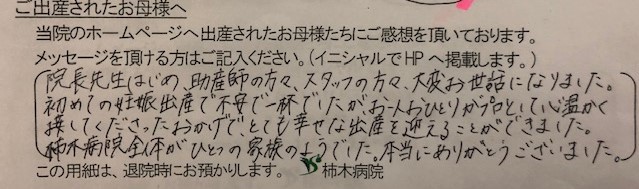 ご出産されたお母様へ
当院のホームページへ出産されたお母様たちにご感想を頂いております。
メッセージを頂ける方はご記入ください。(イニシャルでHPへ掲載します。)
院長先生はじめ、助産師の方々、スタッフの方々、大変お世話になりました。
初めての妊娠出産で不安で一杯でしたがお一人おひとりがプロとして心温かく
接してくださったおかげで、とても幸せな出産を迎えることができました。
柿木病院全体がひとつの家族のようでした。本当にありがとうございました。
この用紙は、退院時にお預かりします。 柿木病院